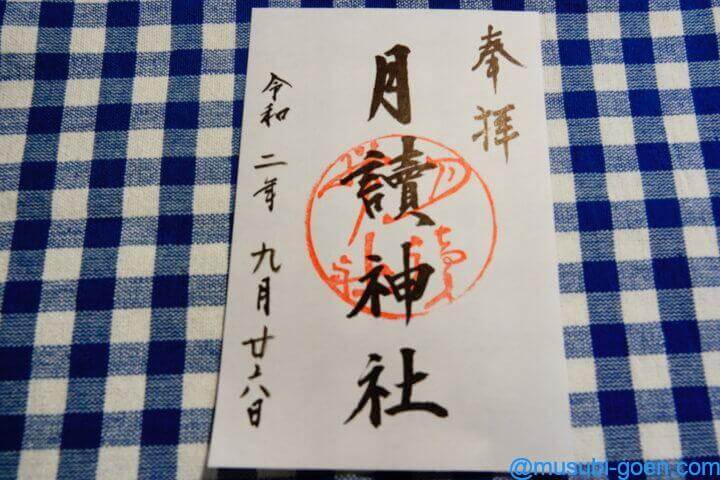 奉拝
月讀神社
令和二年九月廿六日
@musubi-goen.com